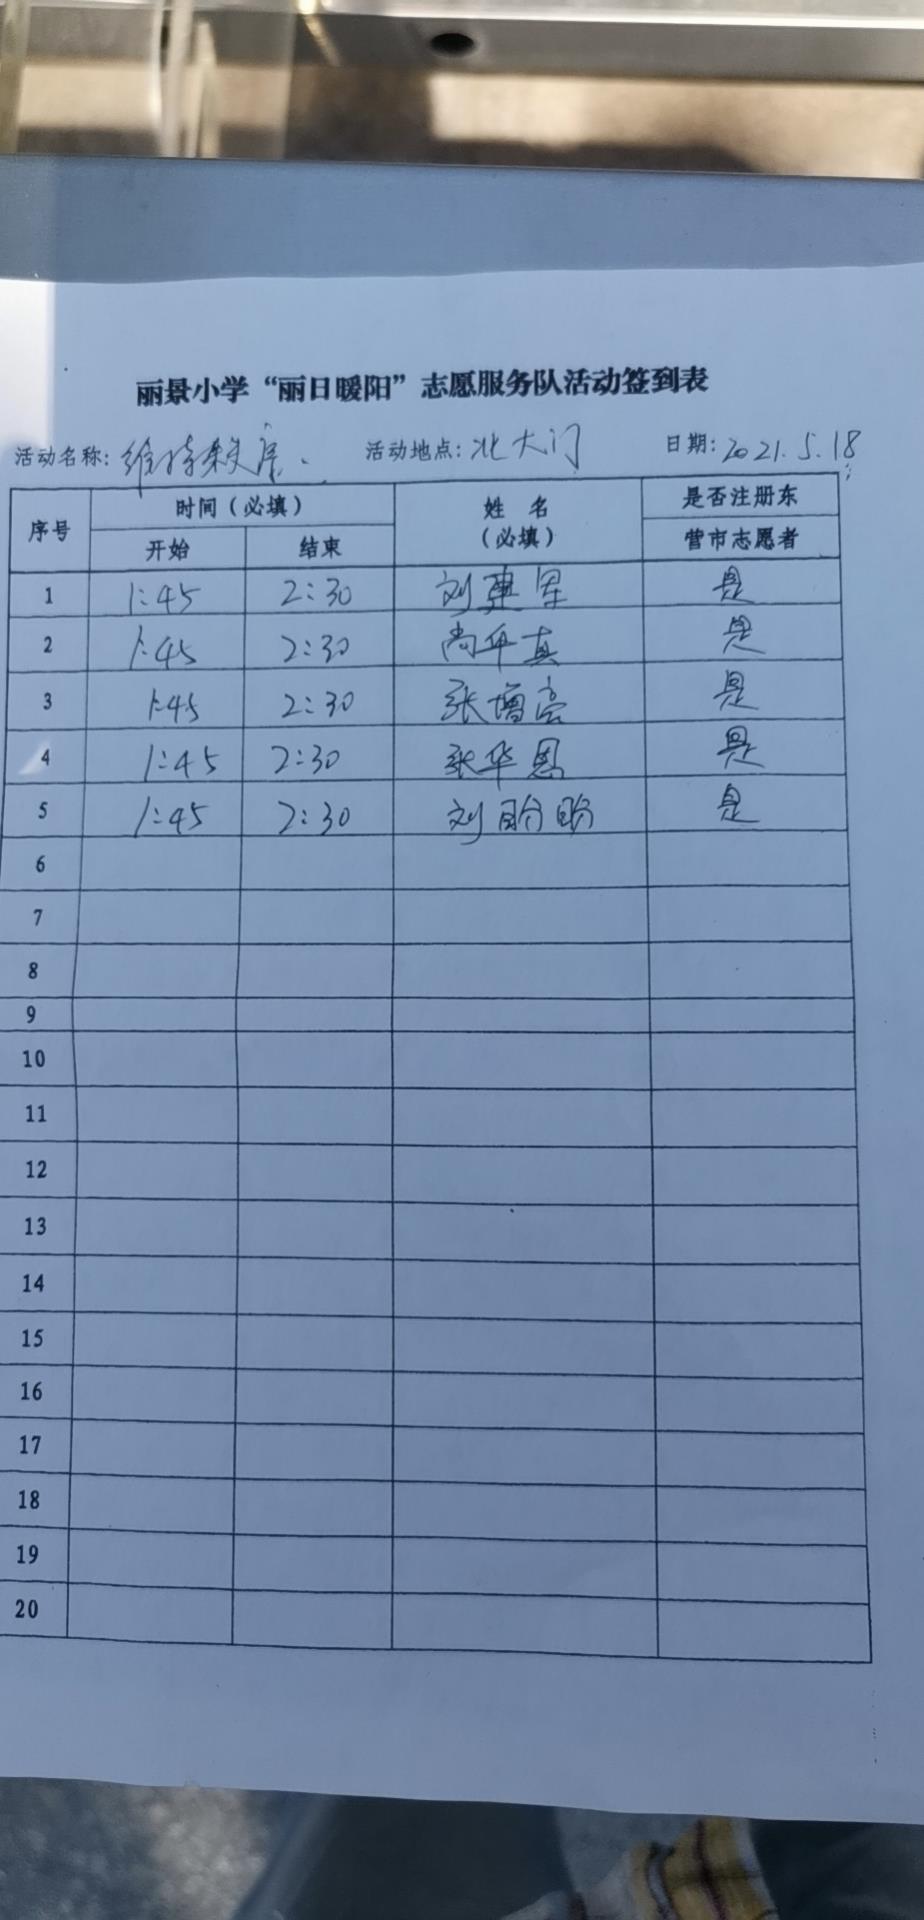 丽景小学“丽日暖阳”志愿服务队活动签到表
活动名称：维持秩序、 活动地点：北大门 日期：2021.5.18
序号 时间（必填） 姓 名 是否注册东
开始 结束 （必填） 营市志愿者
1 1:45 2:30 刘建军 是
2 1:45 2:30 尚华真 是
3 1:45 2:30 张增亮 是
4 1:45 2:30 张华恩 是
5 1:45 2:30 刘盼盼 是
6
7
8
9
10
11
12
13
14
15
16
17
18
19
20